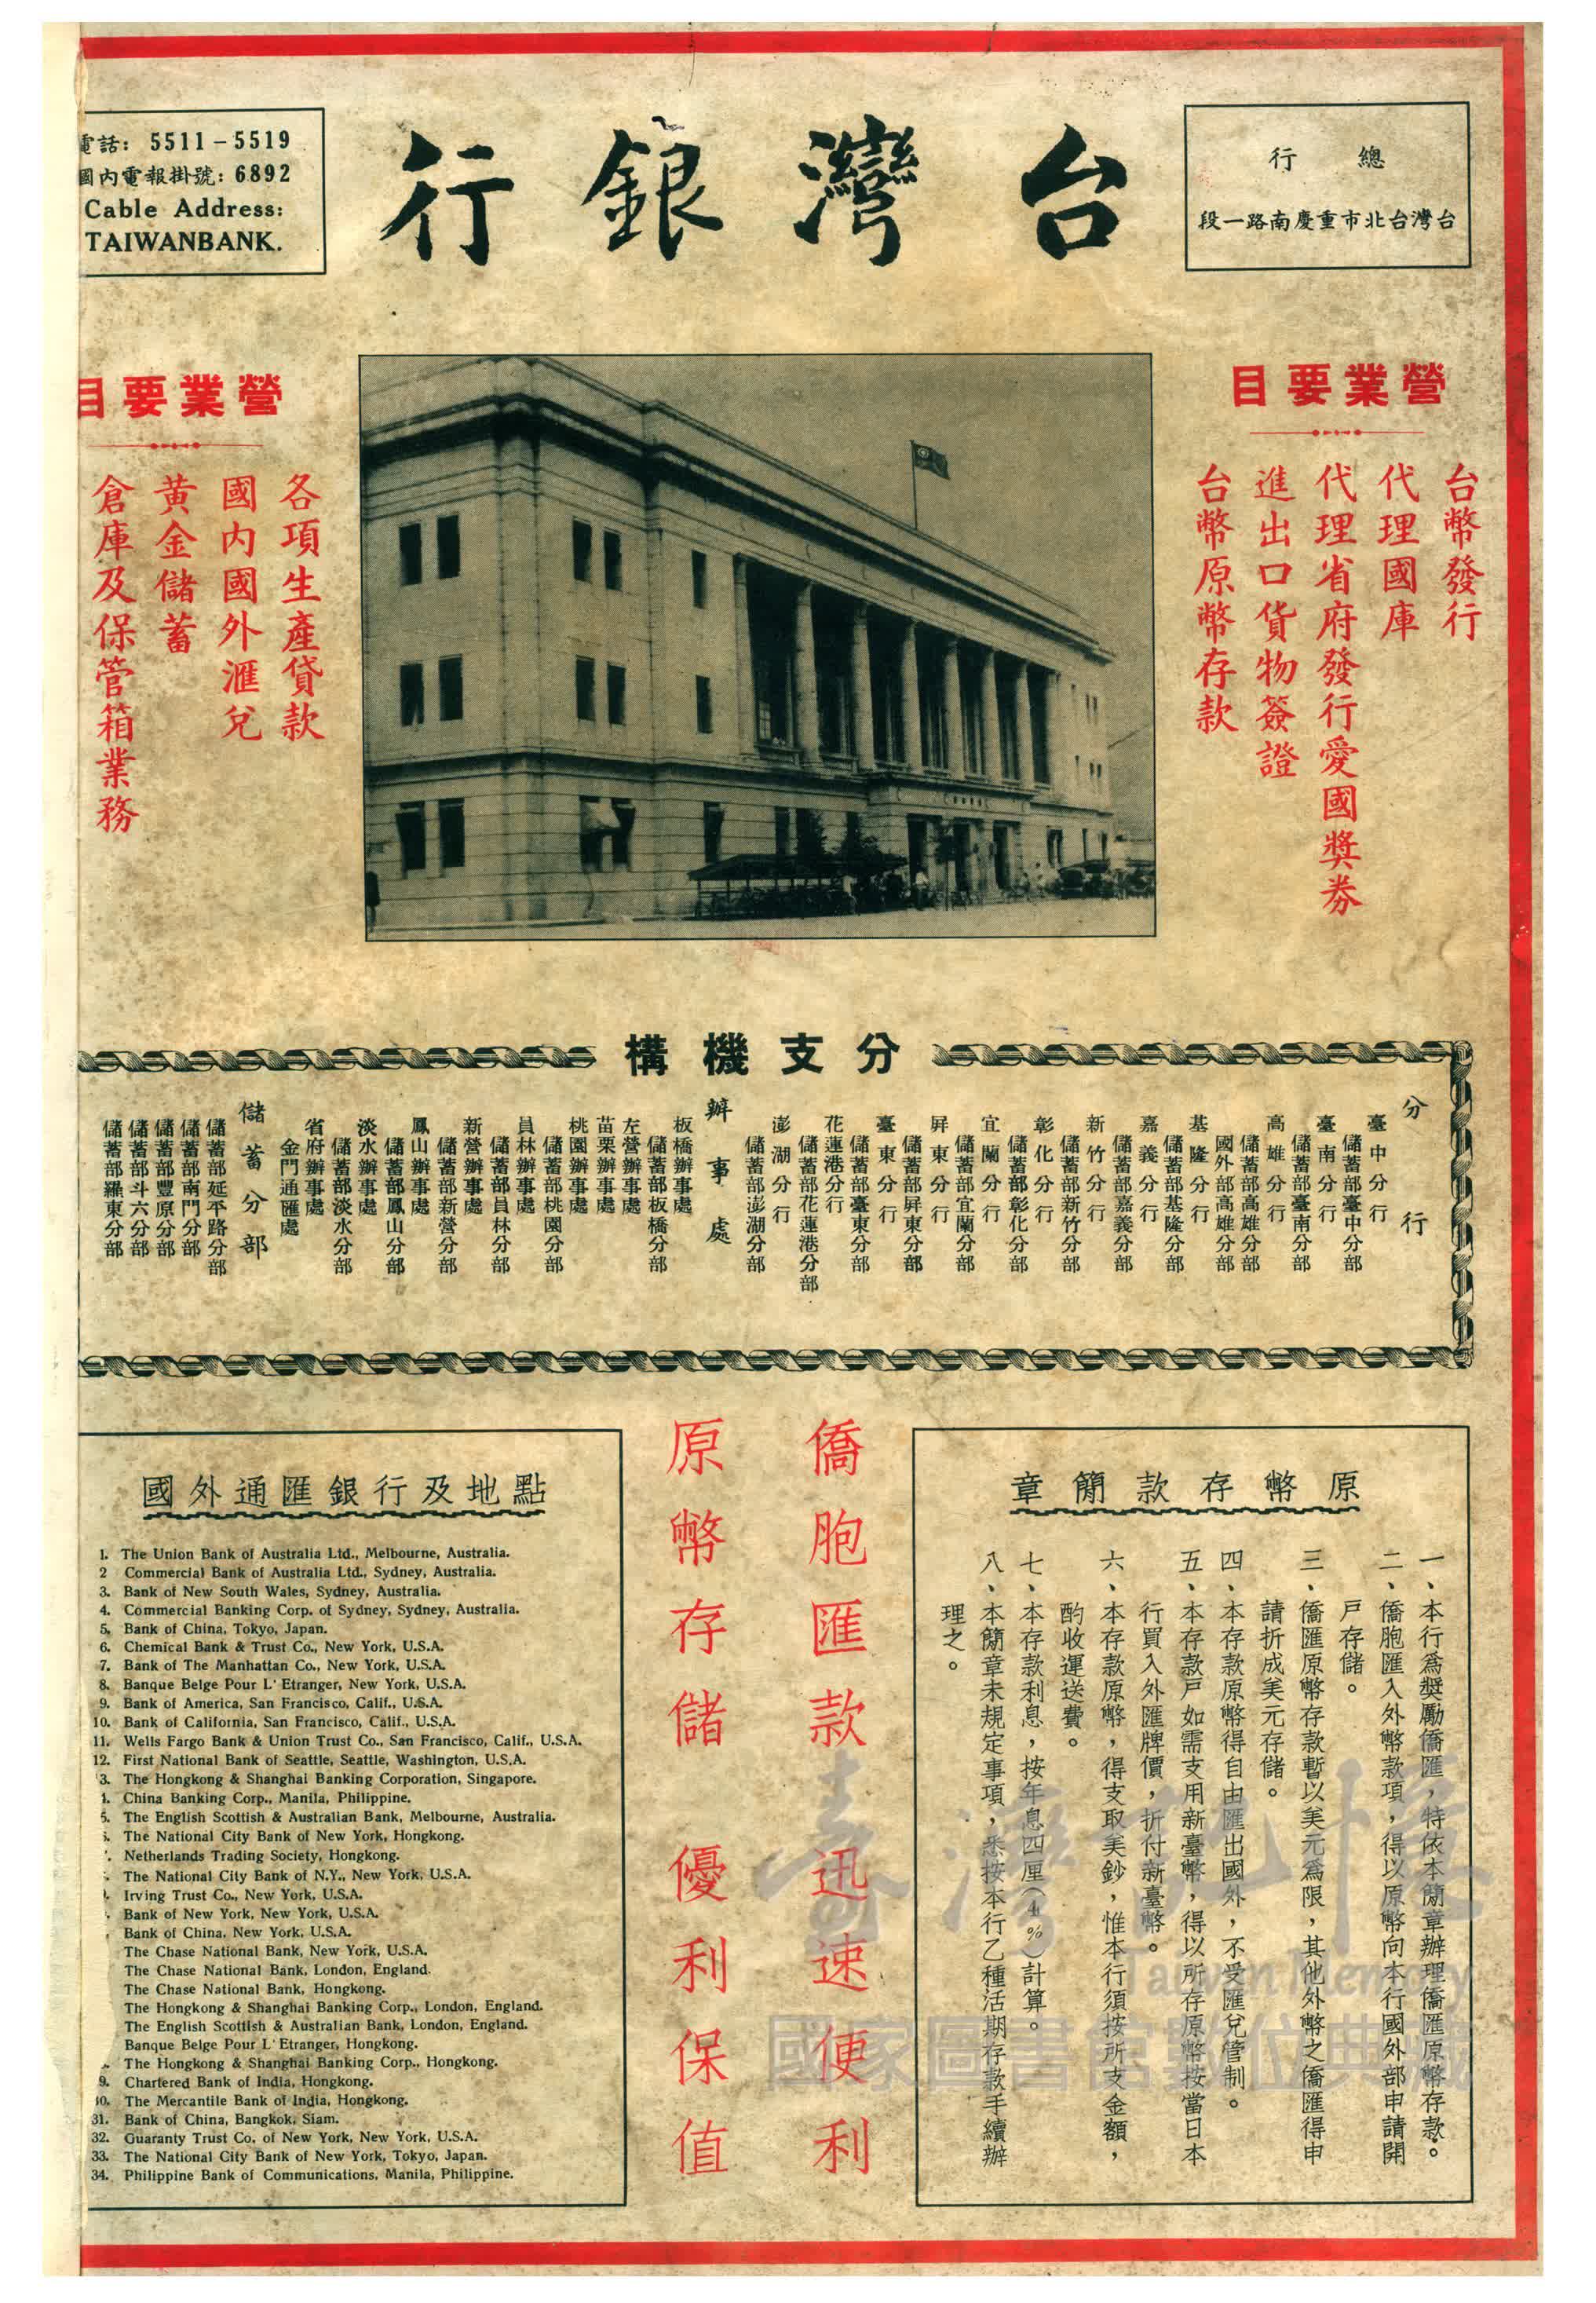 總行
台灣台北市重慶南路一段
台灣銀行
電話：5511－5519
國內電報掛號：6892
Cable Address:
TAIWANBANK.
營業要目
台幣發行
代理國庫
代理省府發行愛國獎券
進出口貨物簽證
台幣原幣存款
營業要目
各項生產貸款
國內國外滙兌
黃金儲蓄
倉庫及保管箱業務
分支機構
分行
臺中分行
儲蓄部臺中分部
臺南分行
儲蓄部臺南分部
高雄分行
儲蓄部高雄分部
國外部高雄分部
基隆分行
儲蓄部基隆分部
嘉義分行
儲蓄部嘉義分部
新竹分行
儲蓄部新竹分部
彰化分行
儲蓄部彰化分部
宜蘭分行
儲蓄部宜蘭分部
屏東分行
儲蓄部屏東分部
臺東分行
儲蓄部臺東分部
花蓮港分行
儲蓄部花蓮港分部
澎湖分行
儲蓄部澎湖分部
辦事處
板橋辦事處
儲蓄部板橋分部
左營辦事處
苗栗辦事處
桃園辦事處
儲蓄部桃園分部
員林辦事處
儲蓄部員林分部
新營辦事處
儲蓄部新營分部
鳳山辦事處
儲蓄部鳳山分部
淡水辦事處
儲蓄部淡水分部
省府辦事處
金門通匯處
儲蓄分部
儲蓄部延平路分部
儲蓄部南門分部
儲蓄部豐原分部
儲蓄部斗六分部
儲蓄部羅東分部
原幣存款簡章
一、本行爲獎勵僑匯，特依本簡章辦理僑匯原幣存款。
二、僑胞匯入外幣款項，得以原幣向本行國外部申請開
戶存儲。
三、僑匯原幣存款暫以美元爲限，其他外幣之僑匯得申
請折成美元存儲。
四、本存款原幣得自由匯出國外，不受匯兌管制。
五、本存款戶如需支用新臺幣，得以所存原幣按當日本
行買入外匯牌價，折付新臺幣。
六、本存款原幣，得支取美鈔，惟本行須按所支金額，
酌收運送費。
七、本存款利息，按年息四厘（4%）計算。
八、本簡章未規定事項，悉按本行乙種活期存款手續辦
理之。
僑胞匯款 迅速便利
原幣存儲 優利保值
國外通匯銀行及地點
1. The Union Bank of Australia Ltd., Melbourne, Australia.
2 Commercial Bank of Australia Ltd., Sydney, Australia.
3. Bank of New South Wales, Sydney, Australia.
4. Commercial Banking Corp. of Sydney, Sydney, Australia.
5. Bank of China, Tokyo, Japan.
6. Chemical Bank & Trust Co., New York, U.S.A.
7. Bank of The Manhattan Co., New York, U.S.A.
8. Banque Belge Pour L' Etranger, New York, U.S.A.
9. Bank of America, San Francisco, Calif., U.S.A.
10. Bank of California, San Francisco, Calif., U.S.A.
11. Wells Fargo Bank & Union Trust Co., San Francisco, Calif., U.S.A.
12. First National Bank of Seattle, Seattle, Washington, U.S.A.
3. The Hongkong & Shanghai Banking Corporation, Singapore.
China Banking Corp., Manila, Philippine.
5. The English Scottish & Australian Bank, Melbourne, Australia.
The National City Bank of New York, Hongkong.
Netherlands Trading Society, Hongkong.
The National City Bank of N.Y., New York, U.S.A.
Irving Trust Co., New York, U.S.A.
Bank of New York, New York, U.S.A.
Bank of China, New York, U.S.A.
The Chase National Bank, New York, U.S.A.
The Chase National Bank, London, England.
The Chase National Bank, Hongkong.
The Hongkong & Shanghai Banking Corp., London, England.
The English Scottish & Australian Bank, London, England.
Banque Belge Pour L' Etranger, Hongkong.
The Hongkong & Shanghai Banking Corp., Hongkong.
9. Chartered Bank of India, Hongkong.
30. The Mercantile Bank of India, Hongkong.
31. Bank of China, Bangkok, Siam.
32. Guaranty Trust Co. of New York, New York, U.S.A.
33. The National City Bank of New York, Tokyo, Japan.
34. Philippine Bank of Communications, Manila, Philippine.
臺灣記憶
Taiwan Memory
國家圖書館數位典藏